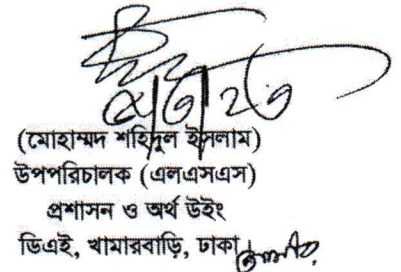 (মোহাম্মদ শহিদুল ইসলাম)
উপপরিচালক (এলএসএস)
প্রশাসন ও অর্থ উইং
ডিএই, খামারবাড়ি, ঢাকা